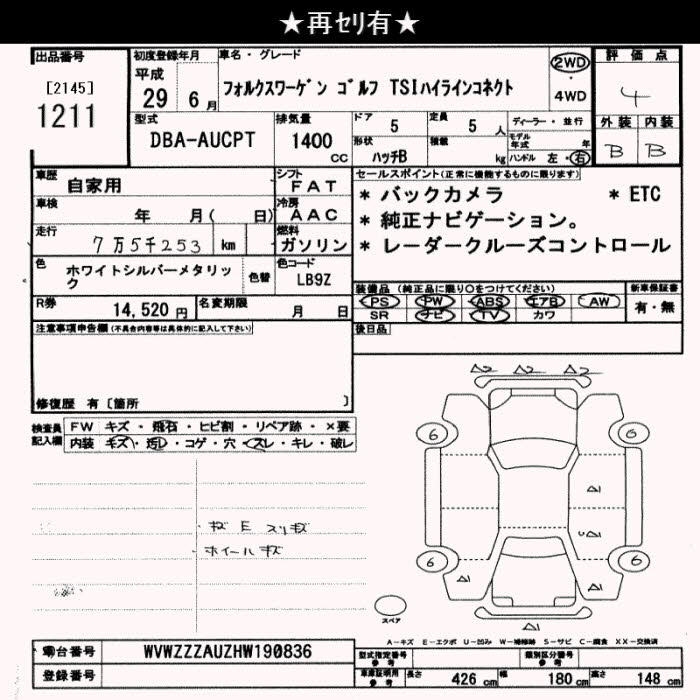 ★再セリ有★
出品番号
[2145]
1211
初度登録年月
平成
29 6月
車名・グレード
フォルクスワーゲン ゴルフ TSIハイラインコネクト
2WD
4WD
評価点
4
外装 内装
B B
型式
DBA-AUCPT
排気量
1400
cc
ドア
5
定員
5 人
形状
ハッチB
積載
kg
ディーラー・並行
モデル年式 年
ハンドル 左・右
車歴
自家用
シフト
FAT
車検
年 月( 日)
冷房
AAC
走行
7万5千253 km
燃料
ガソリン
色
ホワイトシルバーメタリック
色替
色コード
LB9Z
R券
14,520円
名変期限
月 日
セールスポイント(正常に機能するものに限ります)
* バックカメラ * ETC
* 純正ナビゲーション。
* レーダークルーズコントロール
装備品 (純正品に限り○をつけてください)
PS PW ABS エアB AW
SR ナビ TV カワ
新車保証書
有・無
後日品
注意事項申告欄(不具合内容等は具体的に記入して下さい)
修復歴 有〔箇所 〕
検査員記入欄
FW キズ・飛石・ヒビ割・リペア跡・×要
内装 キズ・汚レ・コゲ・穴・スレ・キレ・破レ
・キズ E スリキズ
・ホイールキズ
A2 A2 A2
6 6
A1
A1
6 6
A1 A1
A1
スペア
A-キズ E-エクボ U-凹み W-補修跡 S-サビ C-腐食 XX-交換済
車台番号
WVWZZZAUZHW190836
登録番号
型式指定番号
参考
類別区分番号
参考
車庫証明用
参考
長さ 426 cm 幅 180 cm 高さ 148 cm